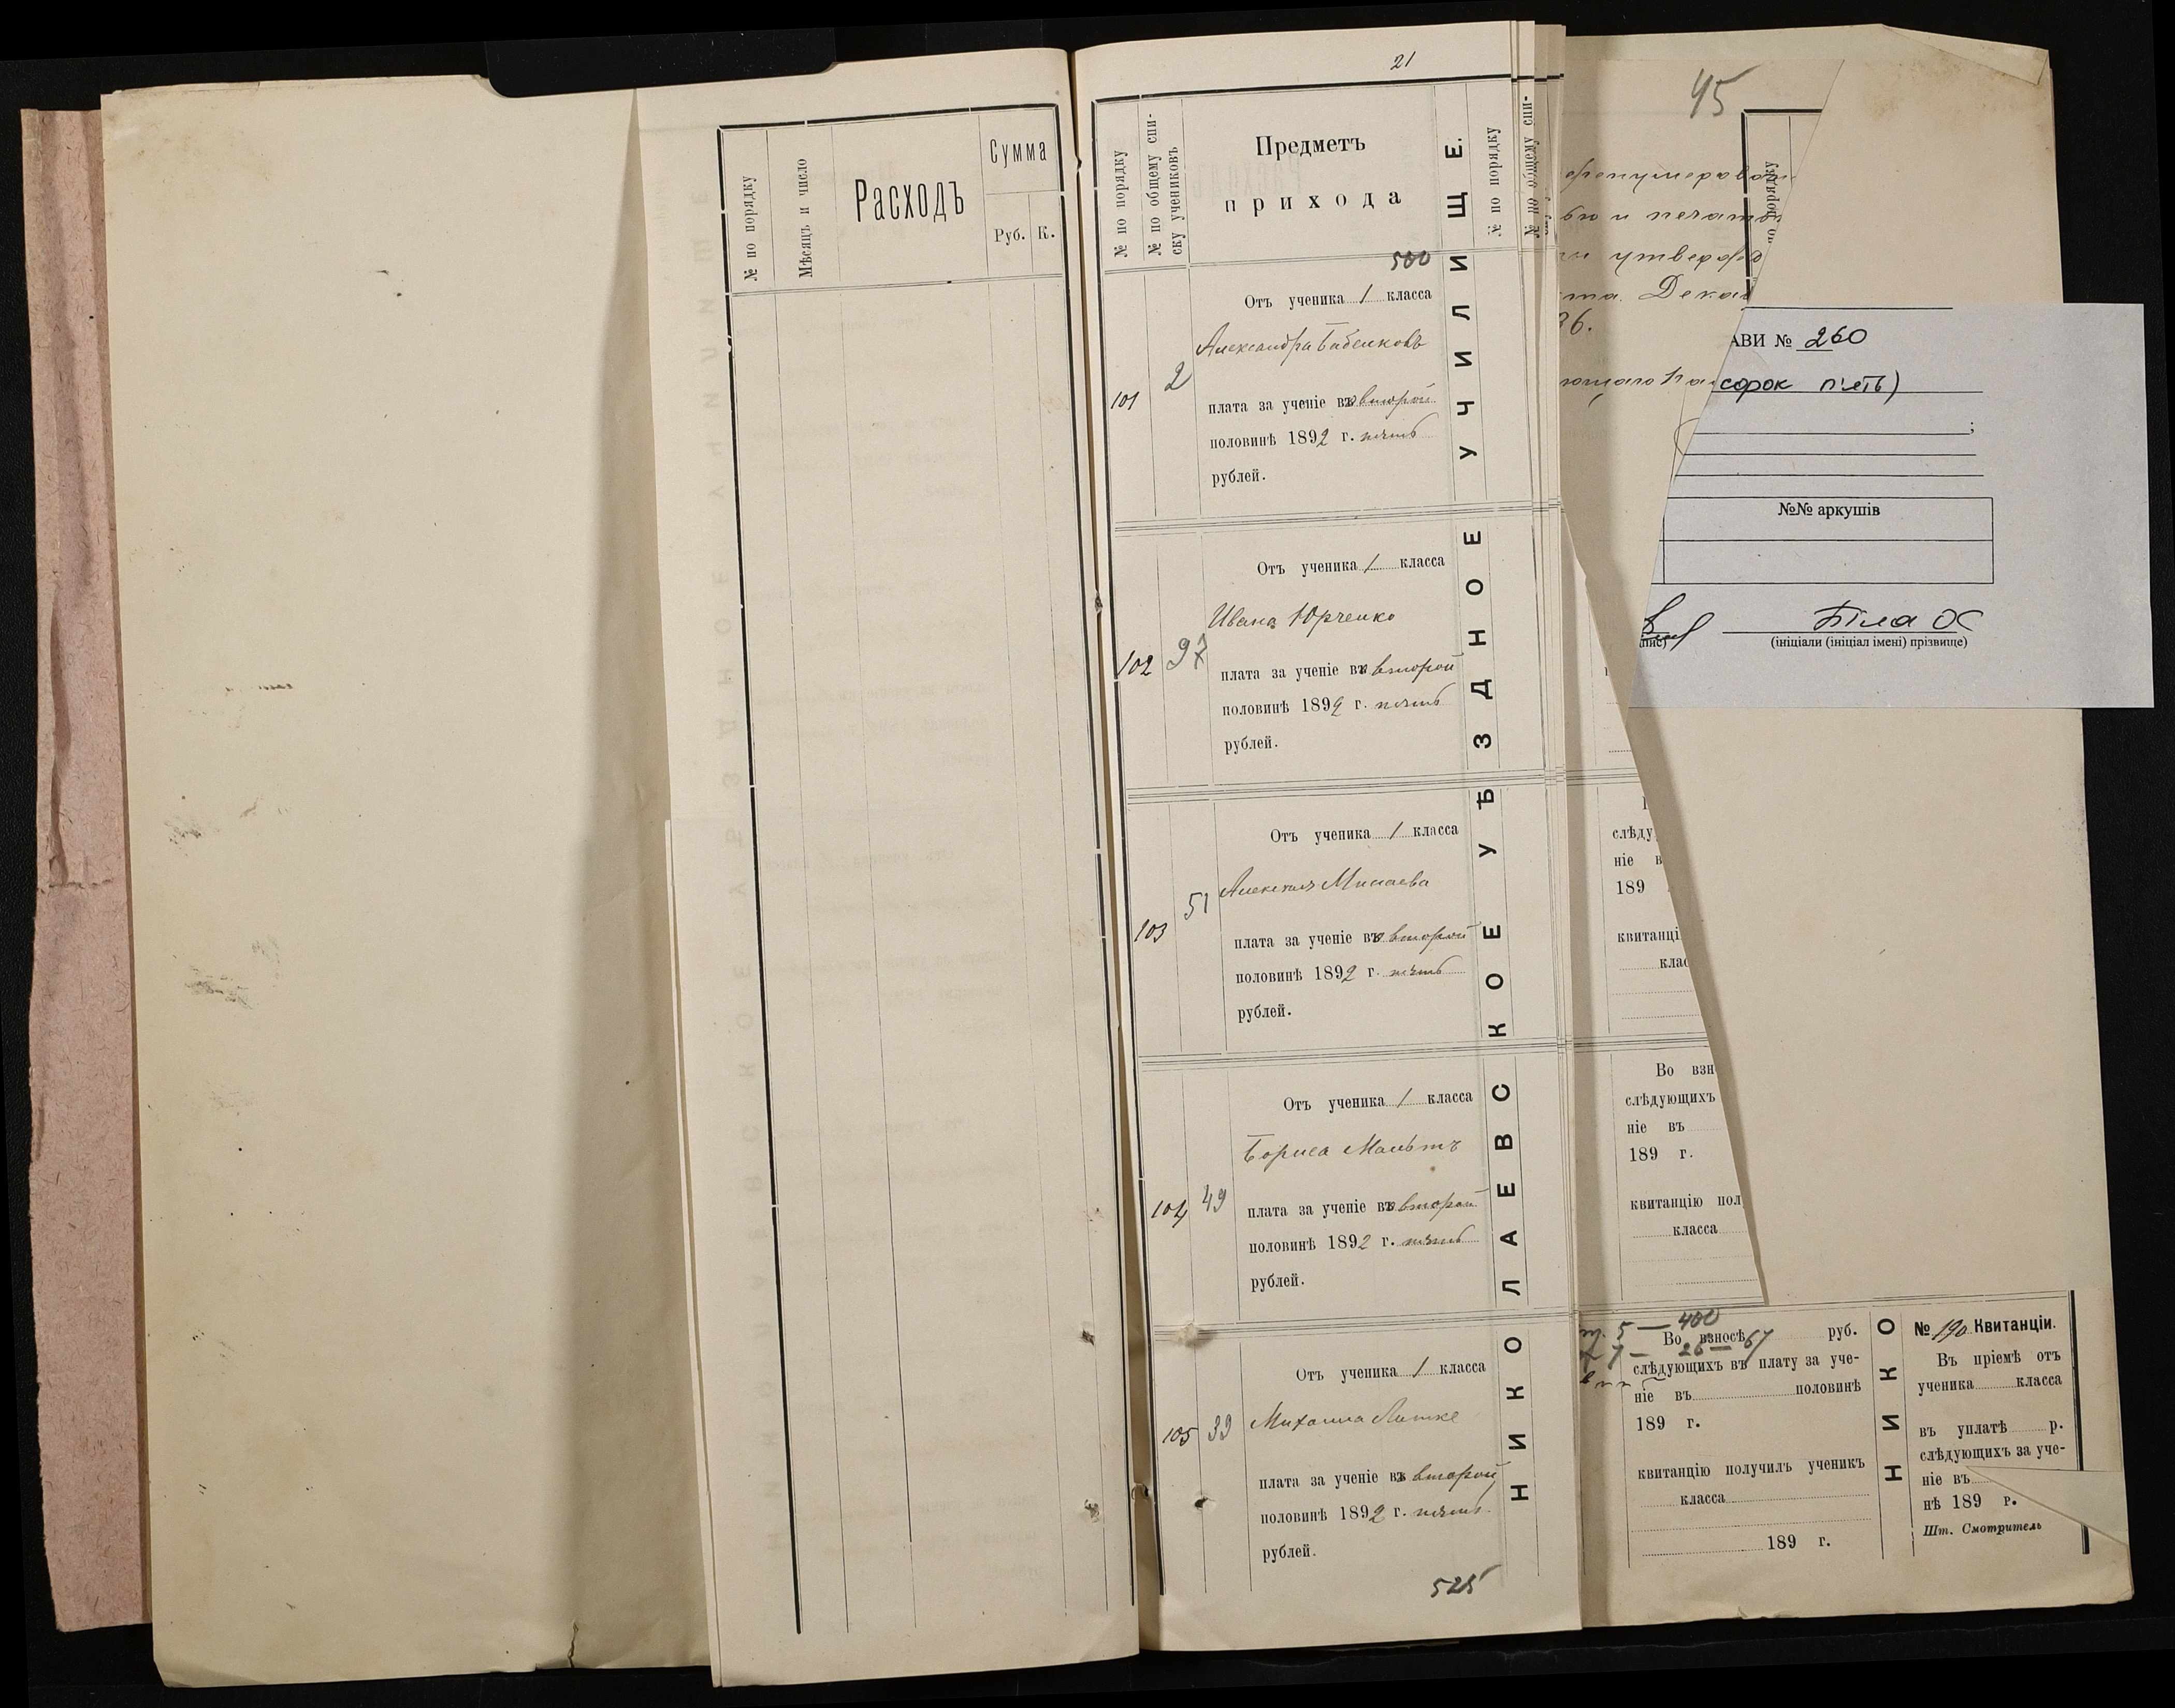 № по порядку
Мѣсяцъ и число
Расходъ
Сумма
Руб. К.
21
№ по порядку
№ по общему спи-
ску учениковъ
Предметъ
прихода
500
101
2
Отъ ученика 1 класса
Александра Бабенковъ
плата за ученіе въ второй
половинѣ 1892 г. пять
рублей.
102
97
Отъ ученика 1 класса
Ивана Юрченко
плата за ученіе въ второй
половинѣ 1892 г. пять
рублей.
103
51
Отъ ученика 1 класса
Алексѣя Минаева
плата за ученіе въ второй
половинѣ 1892 г. пять
рублей.
104
49
Отъ ученика 1 класса
Бориса
плата за ученіе въ второй
половинѣ 1892 г. пять
рублей.
105
39
Отъ ученика 1 класса
Михаила Литке
плата за ученіе въ второй
половинѣ 1892 г. пять
рублей.
525
НИКОЛАЕВСКОЕ УѢЗДНОЕ УЧИЛИЩЕ.
№ по порядку
№ по общему спи-
45
порядку
и печать
утвержд
Дека
АВИ № 260
сорок п'ять)
;
№№ аркушів
Біла О
(ініціали (ініціал імені) прізвище)
слѣду
ніе в
189
квитанці
клас
Во взн
слѣдующихъ
ніе въ
189 г.
квитанцію пол
класса
5 — 400
7 — 26 — 67
Во взносѣ руб.
слѣдующихъ въ плату за уче-
ніе въ половинѣ
189 г.
квитанцію получилъ ученикъ
класса
189 г.
НИКО
№ 190 Квитанціи.
Въ пріемѣ отъ
ученика класса
въ уплатѣ р.
слѣдующихъ за уче-
ніе въ
нѣ 189 г.
Шт. Смотритель